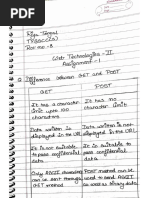 Riya Tengal
(TYBSC(CS))
Roll no - 8
Web Technologies - II
Assignment - 1
Q. Difference between GET and POST
GET
POST
It has a character limit upto 100 characters
It has no character limit
Data written is displayed in the URL
Data written is not displayed in the URL
It is not suitable to pass confidential data
It is suitable to pass confidential data
Only ASCII characters can be sent through GET method
POST method can be used to send ASCII as well as binary data